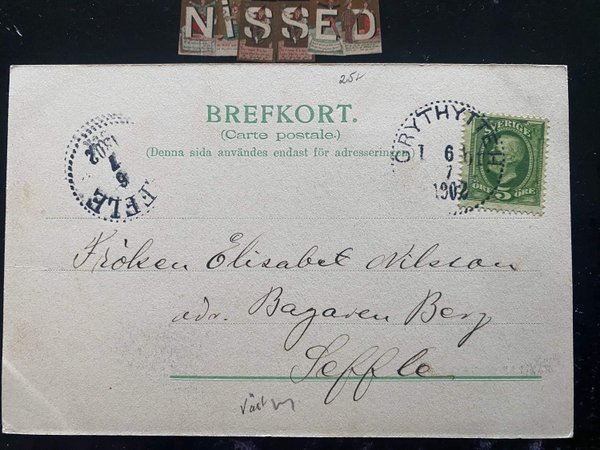 NiSSED
25:-
BREFKORT.
(Carte postale.)
(Denna sida användes endast för adresseringen
GRYTHYTTAN
6
7
1902
SVERIGE
ÖRE 5 ÖRE
EFFLE
6
7
1902
Fröken Elisabet Nilsson
adr. Bagaren Berg
Seffle